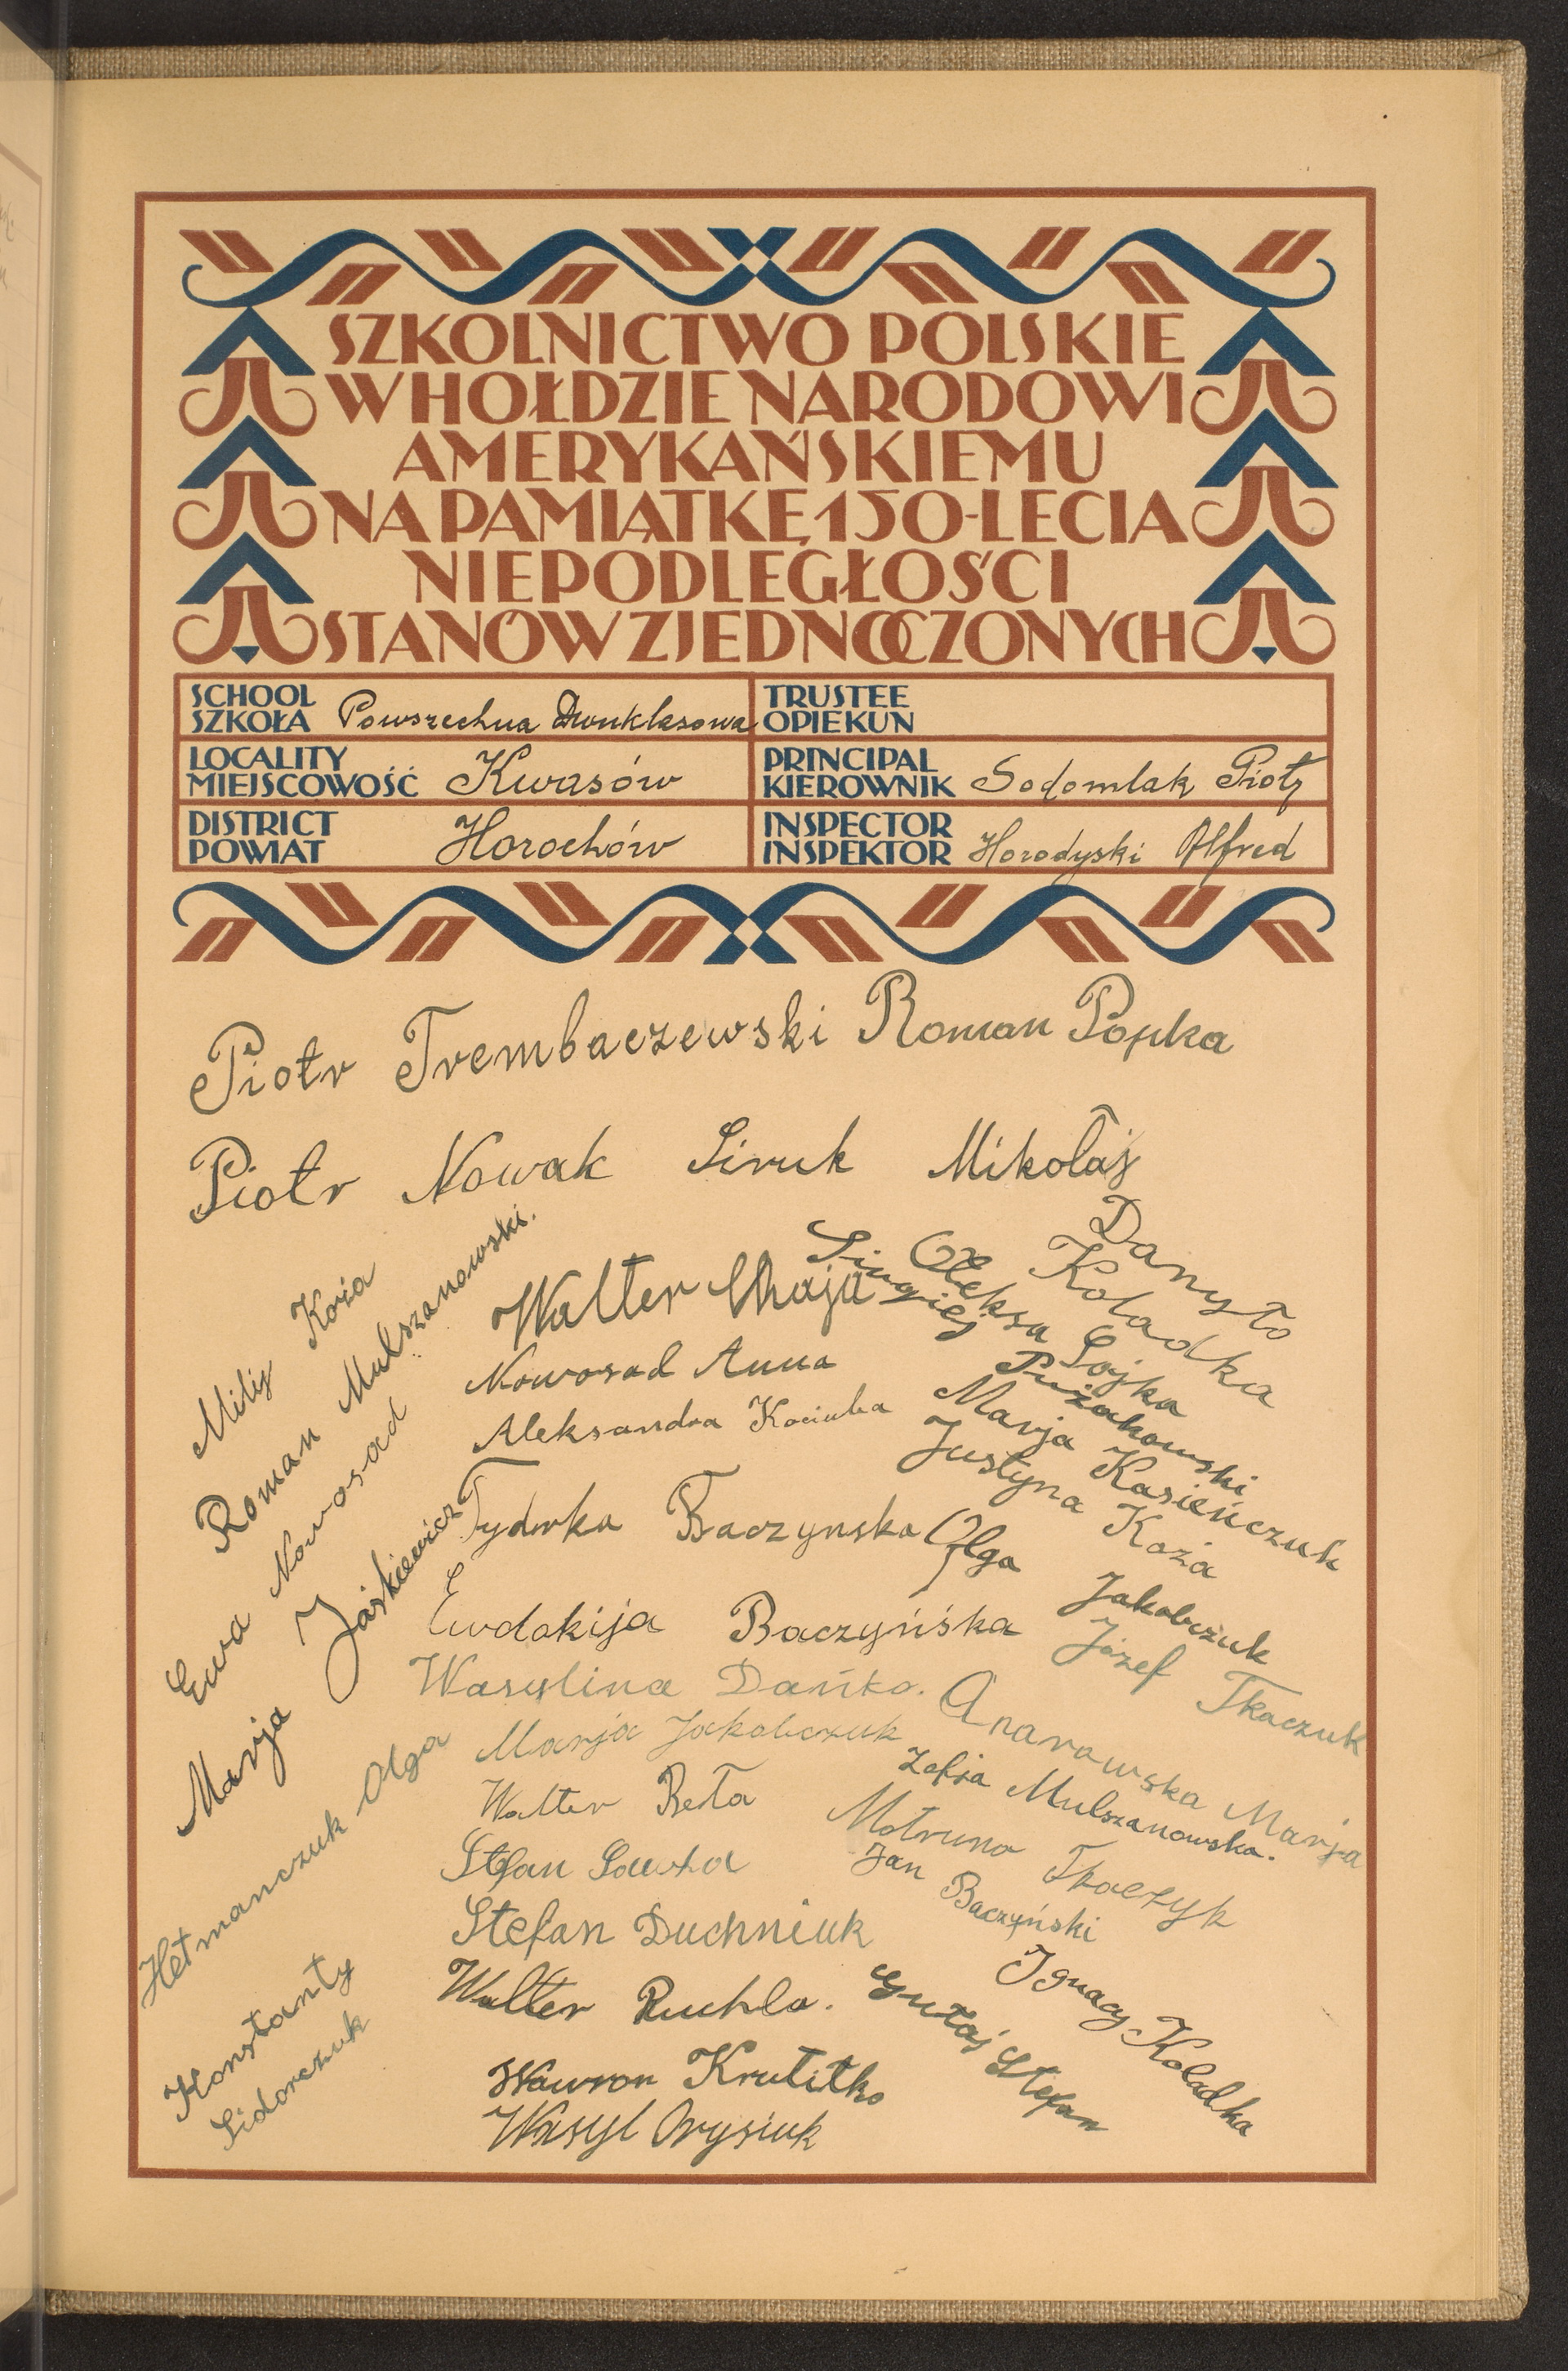 SZKOLNICTWO POLSKIE
W HOŁDZIE NARODOWI
AMERYKAŃSKIEMU
NA PAMIĄTKĘ 150-LECIA
NIEPODLEGŁOŚCI
STANÓW ZJEDNOCZONYCH
SCHOOL
SZKOŁA Powszechna Dwuklasowa
TRUSTEE
OPIEKUN
LOCALITY
MIEJSCOWOŚĆ Kwasów
PRINCIPAL
KIEROWNIK Sodomlak Piotr
DISTRICT
POWIAT Horochów
INSPECTOR
INSPEKTOR Horodyski Alfred
Piotr Trembaczewski Roman Popka
Piotr Nowak Siruk Mikołaj
Danyło
Koladka
Oleksa Sojka
Singiej
Pużakowski
Marja Kasieńczuk
Justyna Koza
Olga
Jakobczuk
Józef Tkaczuk
Walter Maja
Nowosad Anna
Aleksandra Kociuba
Baczynska
Ewdokija Baczyńska
Wasylina Dańko.
Marja Jakobczuk
Anarowska Marja
Zofja Mulszanowska.
Walter Reta
Motruna Tkaczyk
Stefan
Jan Baczyński
Stefan Duchniuk
Walter Ruchla.
Ignacy Koladka
Gutaj Stefan
Wawron Krutitko
Wasyl Orysiuk
Koza
Roman Mulszanowski.
Ewa Nowosad
Marja Jaśkiewicz
Hetmanczuk Olga
Konstanty
Sidorczuk